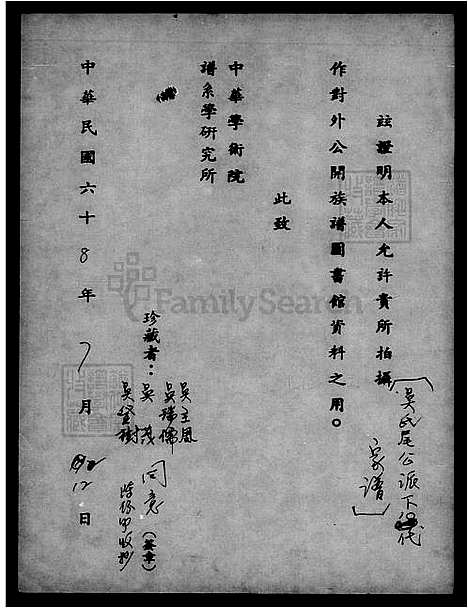 茲證明本人允許貴所拍攝
〔吳氏尾公派下
家譜〕
作對外公開族譜圖書館資料之用。
此致
中華學術院
譜系學研究所
珍藏者：
吳主恩
吳瑞儒
吳茂
吳樹
同意
（簽章）
中華民國六十8年7月12日
FamilySearch